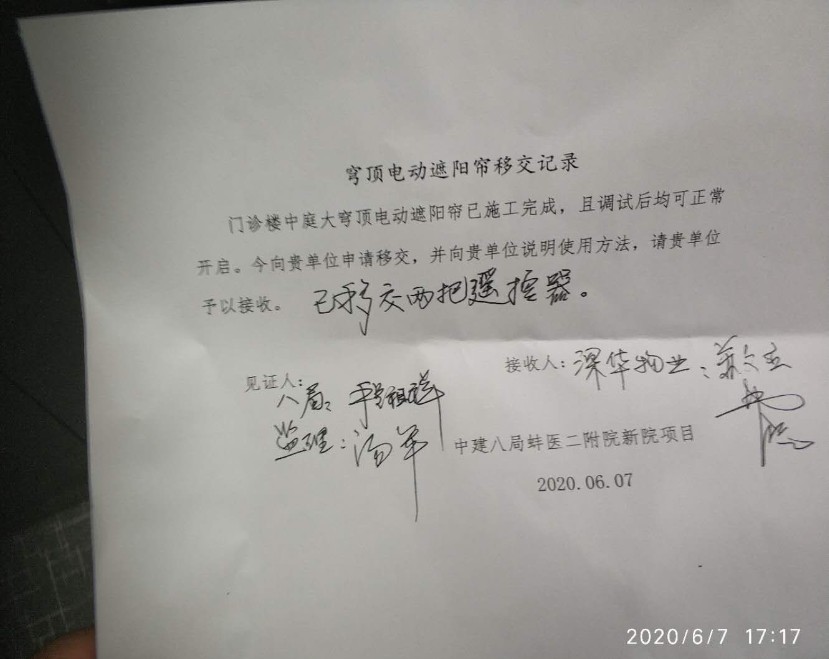 穹顶电动遮阳帘移交记录
门诊楼中庭大穹顶电动遮阳帘已施工完成，且调试后均可正常
开启。今向贵单位申请移交，并向贵单位说明使用方法，请贵单位
予以接收。 已移交两把遥控器。
接收人：深华物业：
见证人：
八局：
监理：汤军
中建八局蚌医二附院新院项目
2020.06.07
2020/6/7 17:17